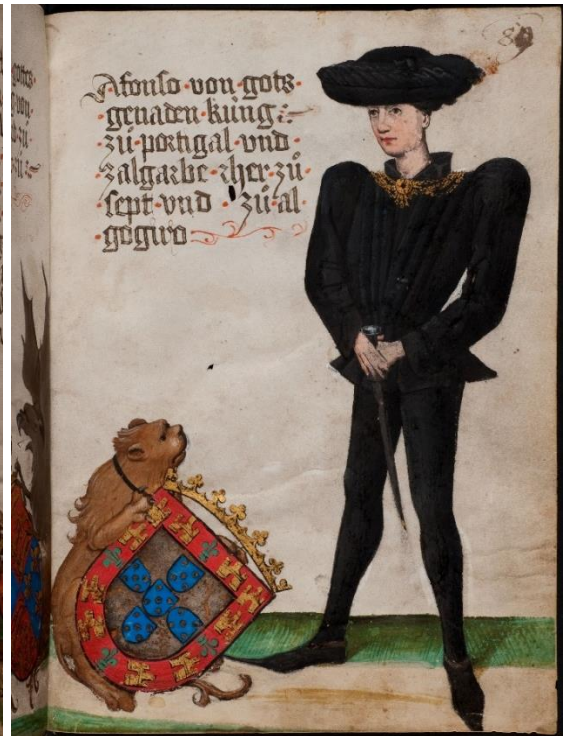 Afonso · von · gots ·
genaden · küng :~
· zü · portigal · vnd ·
· zalgarbe · rher · zü
· sept · vnd · zü · al
· gogiro